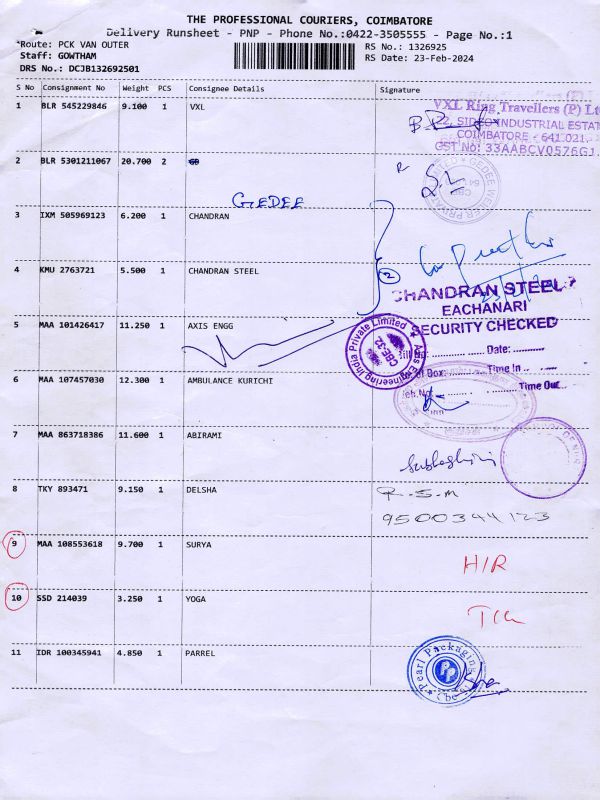 THE PROFESSIONAL COURIERS, COIMBATORE
Delivery Runsheet - PNP - Phone No.:0422-3505555 - Page No.:1
*Route: PCK VAN OUTER
RS No.: 1326925
Staff: GOWTHAM
RS Date: 23-Feb-2024
DRS No.: DCJB132692501
S No Consignment No Weight PCS Consignee Details Signature
1 BLR 545229846 9.100 1 VXL
VXL Ring Travellers (P) Lt
22, SIDCO INDUSTRIAL ESTAT
COIMBATORE - 641 021.
GST No: 33AABCV0576G1
2 BLR 5301211067 20.700 2
GEDEE
3 IXM 505969123 6.200 1 CHANDRAN
4 KMU 2763721 5.500 1 CHANDRAN STEEL
2
CHANDRAN STEEL
EACHANARI
SECURITY CHECKED
5 MAA 101426417 11.250 1 AXIS ENGG
Axis Engineering India Private Limited
CBE-32
Bill No: Date:
of Box: Time In
Veh.No. Time Out
6 MAA 107457030 12.300 1 AMBULANCE KURICHI
7 MAA 863718386 11.600 1 ABIRAMI
8 TKY 893471 9.150 1 DELSHA
R-S-M
9500344123
9 MAA 108553618 9.700 1 SURYA
H/R
10 SSD 214039 3.250 1 YOGA
11 IDR 100345941 4.850 1 PARREL
Pearl Packaging
PP
Cbe